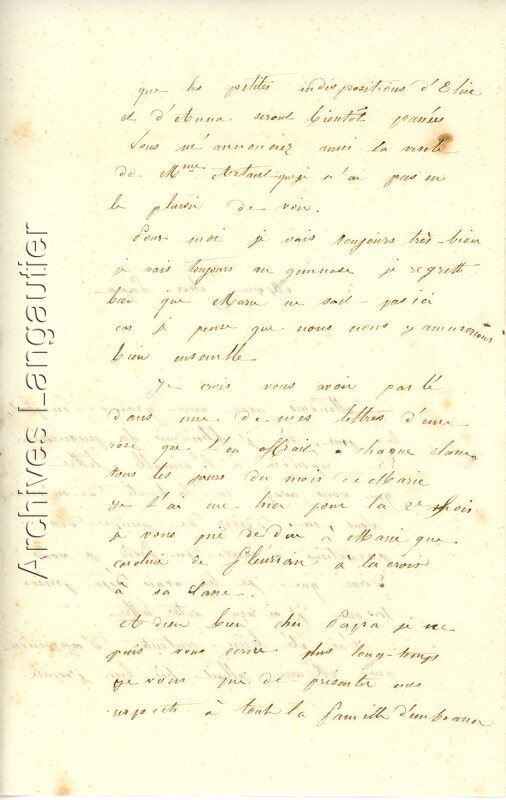 que les petites indispositions d'Elise
et d'Anna seront bientôt passées
Vous m'annonciez aussi la visite
de Mme Artaut que je n'ai pas eu
le plaisir de voir.
Pour moi je vais toujours très bien
je vais toujours au gimnase je regrette
bien que Marie ne soit pas ici
car je pense que nous nous y amuserions
bien ensemble
Je crois vous avoir parlé
dans une de mes lettres d'une
rose que l'on tirait a chaque classe
tous les jours du mois de Marie
je l'ai eue hier pour la 2e fois
je vous prie de dire à Marie que
caroline de fleurian a la croix
à sa classe.
Adieu bien cher Papa je ne
puis vous écrire plus long-temps
je vous prie de présenter mes
respects à tout la famille
Archives Langautier